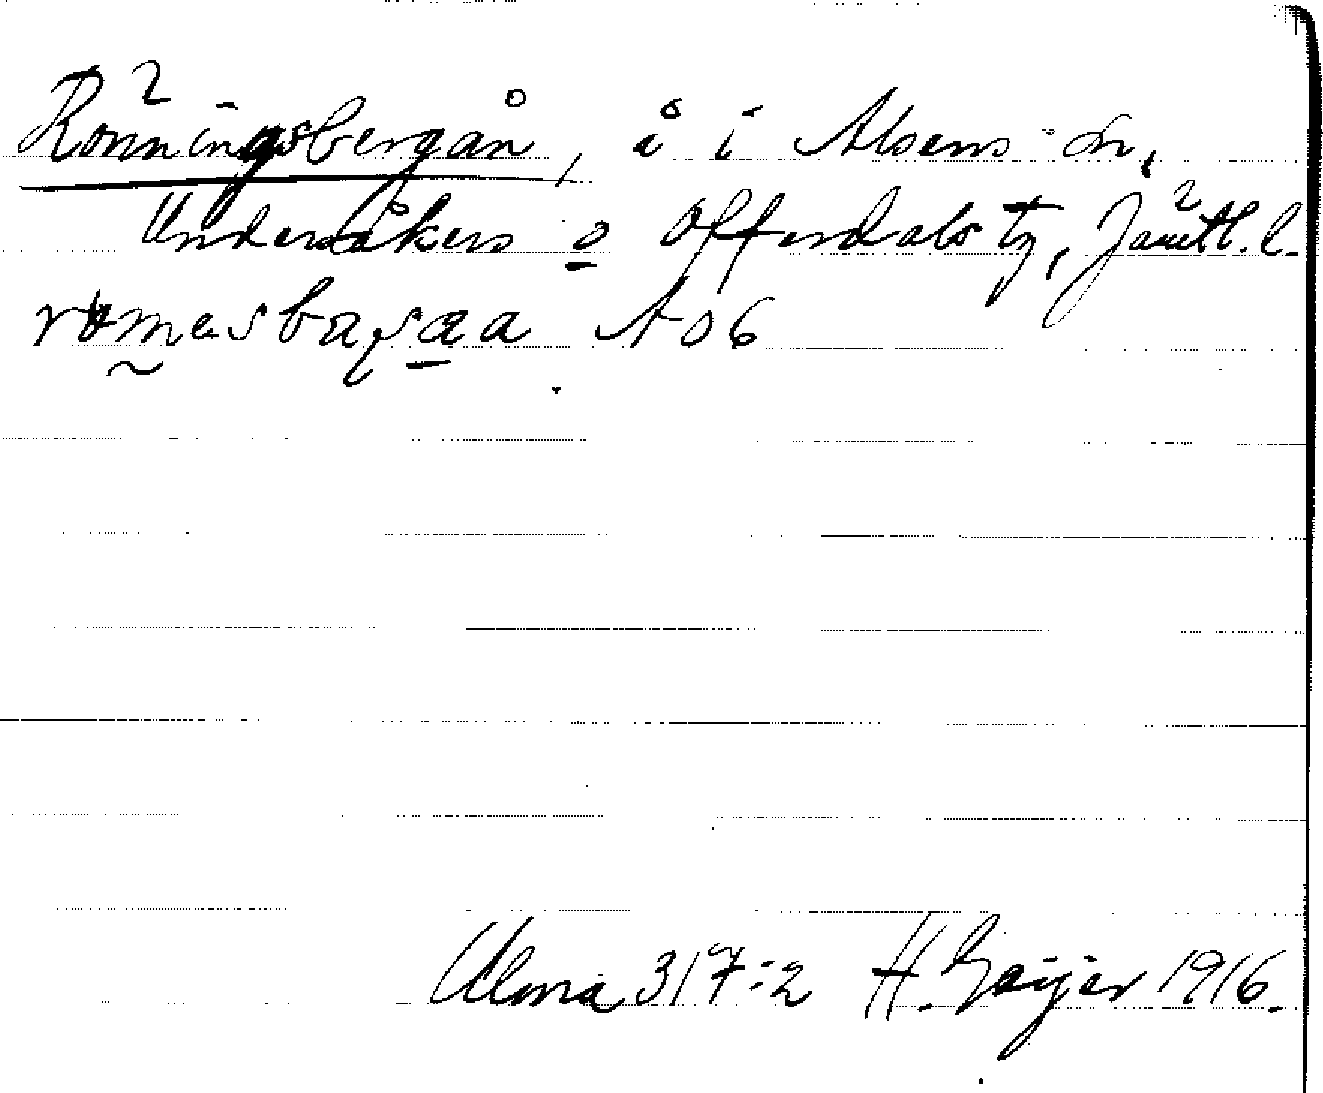 Rönningsbergån, å i Alsens sn,
Undersåkers o Offerdals tg, Jämtl. l.
A 06
Ulma 317:2 H. Geijer 1916.